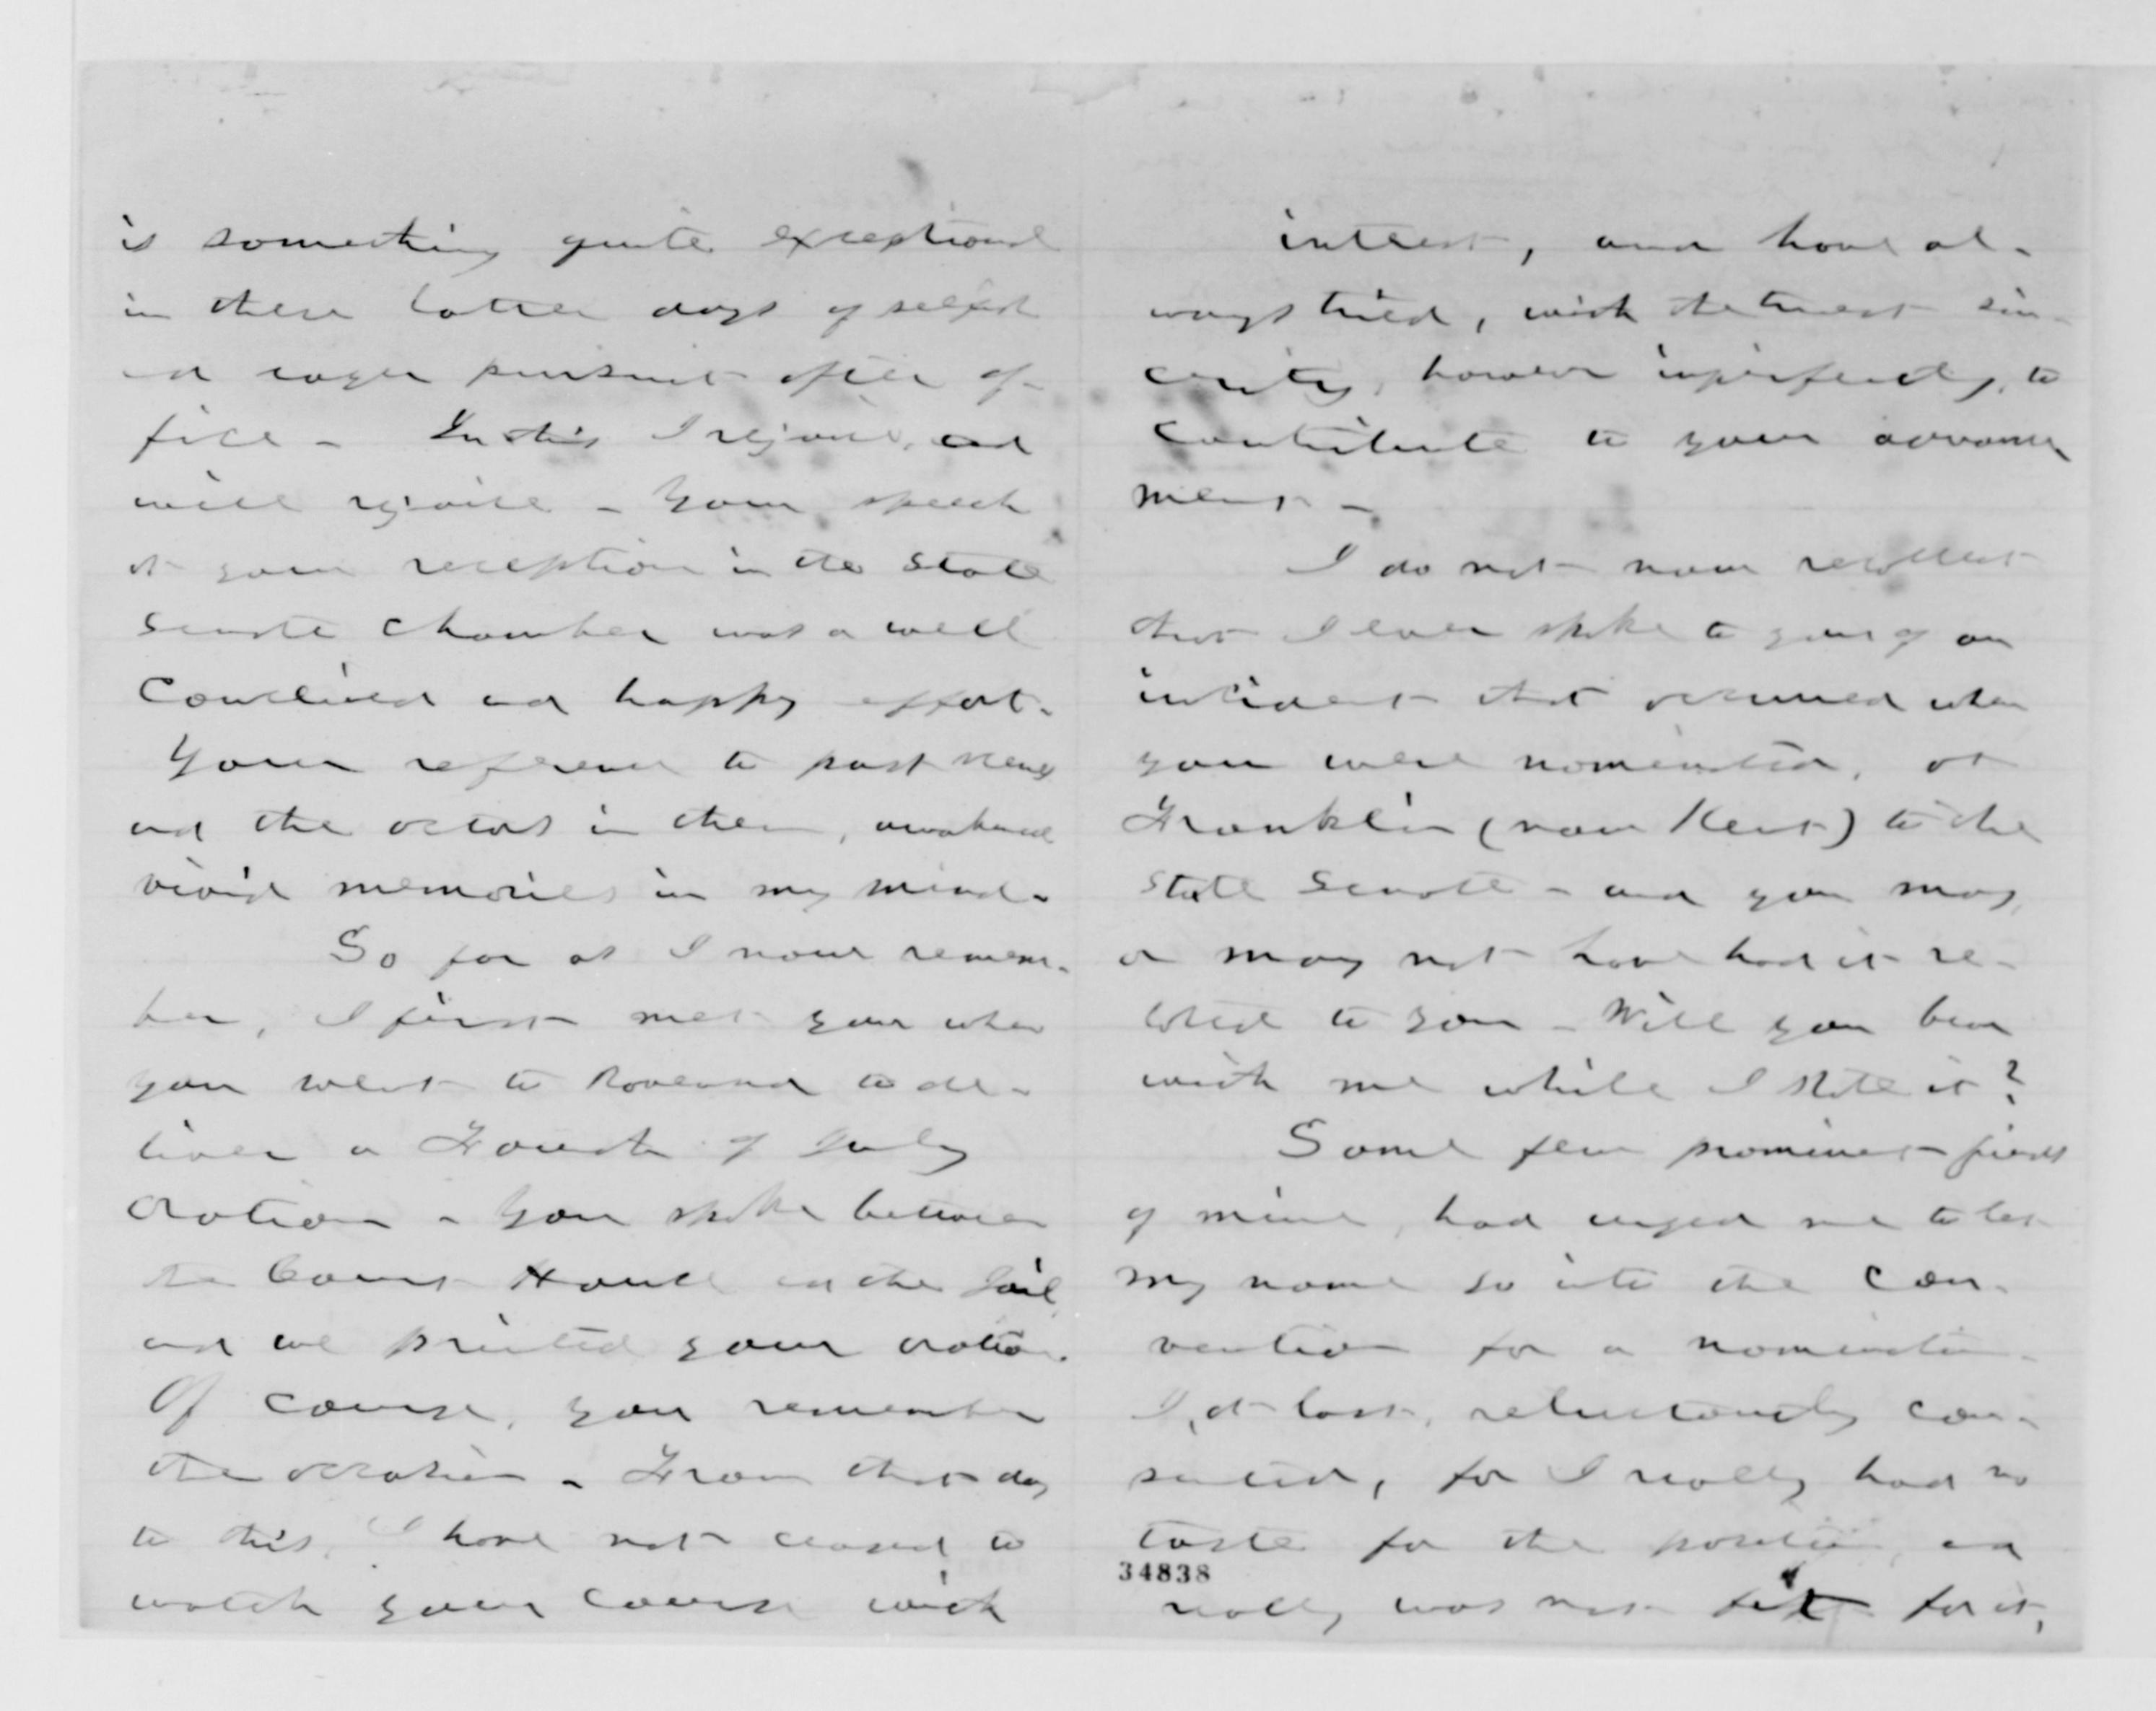 is something quite exceptional
in these latter days of selfish
and eager pursuit after of-
fice - In this I rejoice, and
will rejoice - Your speech
at your reception in the State
Senate Chamber was a well
conceived and happy effort.
Your reference to past scenes
and the actors in them, awakened
vivid memories in my mind -
So far as I now remem-
ber, I first met you when
you went to Ravenna to de-
liver a Fourth of July
oration - You spoke between
the Court House and the Jail,
and we printed your oration.
Of course, you remember
the occasion - From that day
to this, I have not ceased to
watch your course with
interest, and have al-
ways tried, with the truest sin-
cerity, however imperfectly, to
contribute to your advance
ment -
I do not now recollect
that I ever spoke to you of an
incident that occurred when
you were nominated, at
Franklin (now Kent) to the
State Senate - and you may,
or may not have had it re-
lated to you - Will you bear
with me while I state it?
Some few prominent friends
of mine, had urged me to let
my name go into the con-
vention for a nomination -
I, at last, reluctantly con-
sented, for I really had no
taste for the position, and
34838
really was not fit for it,